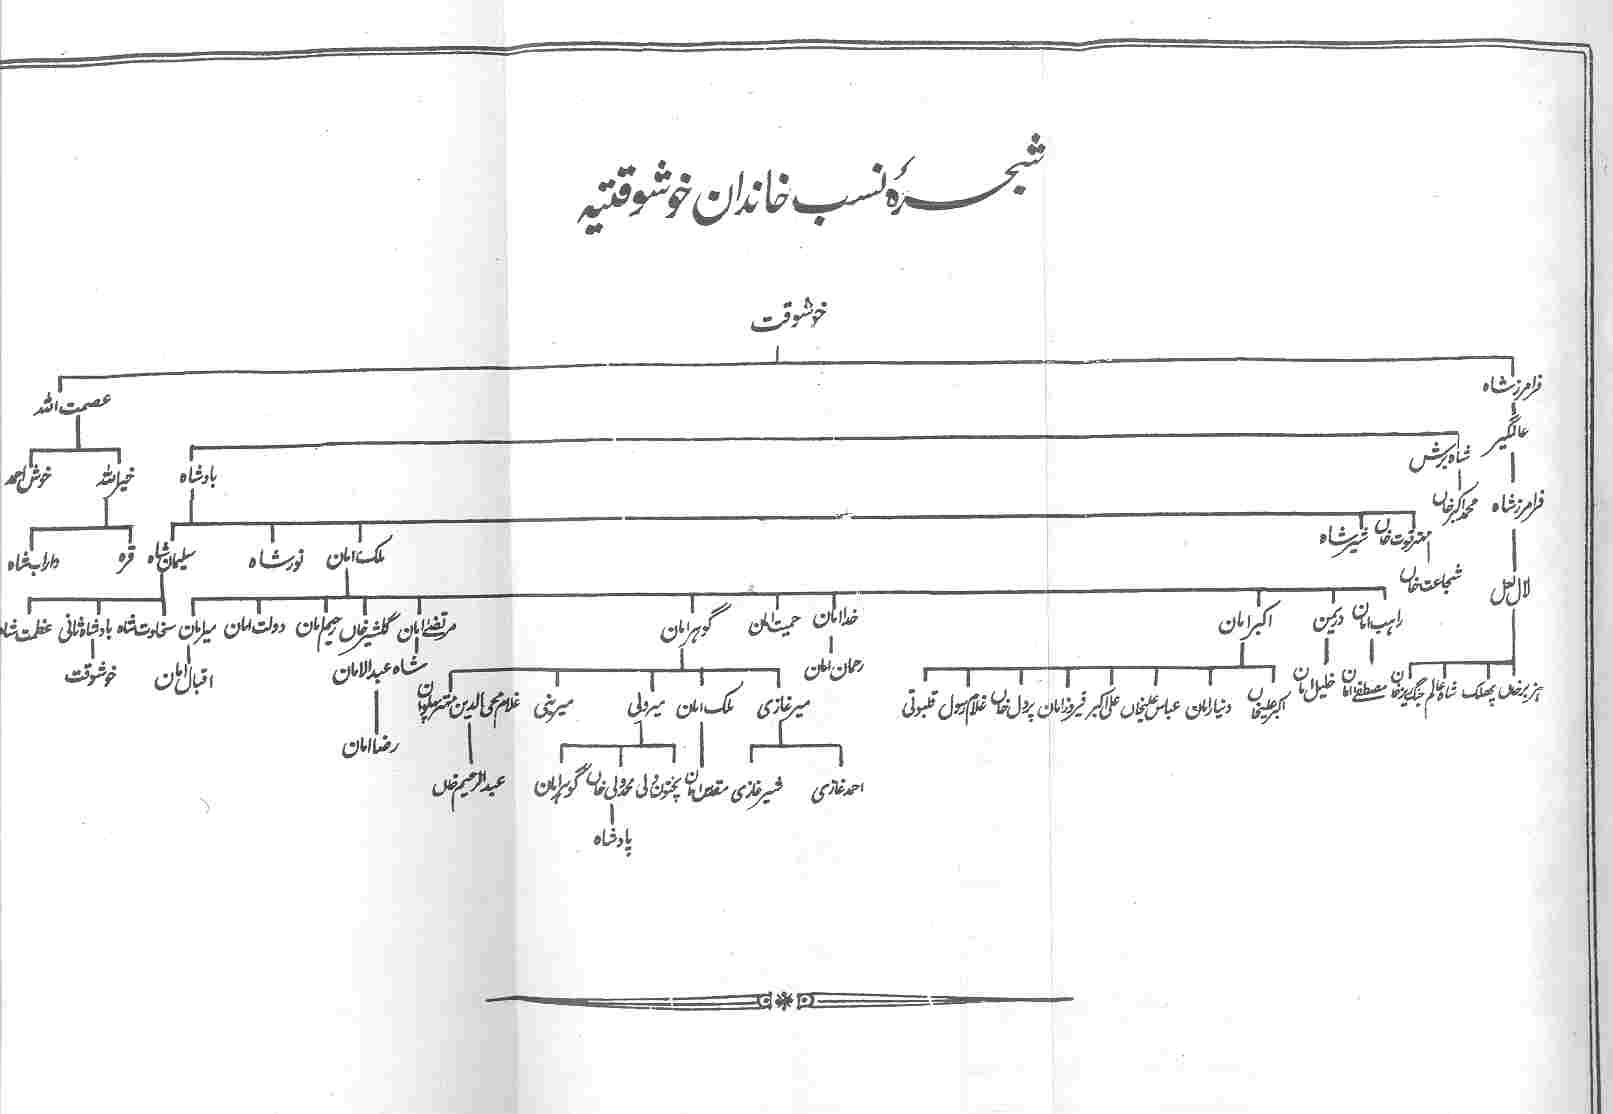 شجرۂ نسب خاندان خوشوقتیہ
خوشوقت
فرامرز شاہ
عصمت اللہ
عالمگیر
شاہ برش
بادشاہ
خیر اللہ
خوش احمد
فرامرز شاہ
محمد اکبر خاں
مہتر قوت خاں
شیر شاہ
ملک امان
نور شاہ
سلیمان شاہ
قرہ
داراب شاہ
لال لعل
شجاعت خاں
راہب امان
دریمن
اکبر امان
خدا امان
حمیت امان
گوہر امان
مرتضےٰ امان
گلشیر خاں
رحیم امان
دولت امان
میر امان
سخاوت شاہ
بادشاہ ثانی
عظمت شاہ
رحمان امان
شاہ عبدالامان
اقبال امان
خوشوقت
ہزبر خاں
پھلک
شاہ عالم
جہانگیر خان
مصطفےٰ امان
خلیل امان
اکبر علیخاں
دنیا امان
عباس علیخاں
علی اکبر
فیروز امان
پردل خاں
غلام رسول
قلبوقی
میر غازی
ملک امان
میر ولی
میر نبی
غلام محی الدین
مہتر پہلوان
رضا امان
احمد غازی
شیر غازی
مقدس امان
پختون ولی
محمد ولی خاں
گوہر امان
عبد الرحیم خاں
پادشاہ